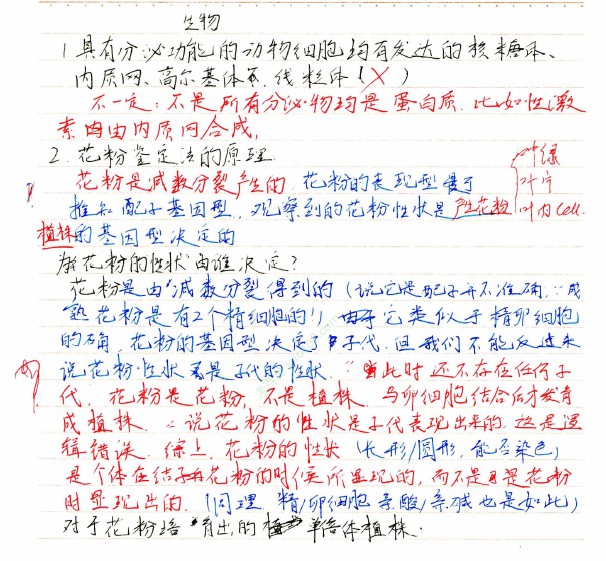 生物
1 具有分泌功能的动物细胞均有发达的核糖体、
内质网、高尔基体、线粒体 (X)
不一定:不是所有分泌物均是蛋白质.比如性激
素由内质网合成,
2.花粉鉴定法的原理.
花粉是减数分裂产生的.花粉的表现型
推知配子基因型,观察到的花粉性状是产生花粉
叶绿
叶片
叶肉cell.
植株的基因型决定的
花粉的性状由谁决定?
花粉是由减数分裂得到的(说它是配子并不准确,∵成
熟花粉是有2个精细胞的!)它类似于精卵细胞
的确,花粉的基因型决定了子代.但我们不能反过来
说花粉性状是子代的性状.∵此时还不存在任何子
代.花粉是花粉,不是植株.与卵细胞结合后才发育
成植株.∴说花粉的性状是子代表现出来的.这是逻
辑错误.综上,花粉的性状(长形/圆形,能否染色)
是个体在结花粉的时候所显现的,而不是花粉
时显现出的.(同理,精/卵细胞 亲酸/亲碱也是如此)
对于花粉培育出的单倍体植株.